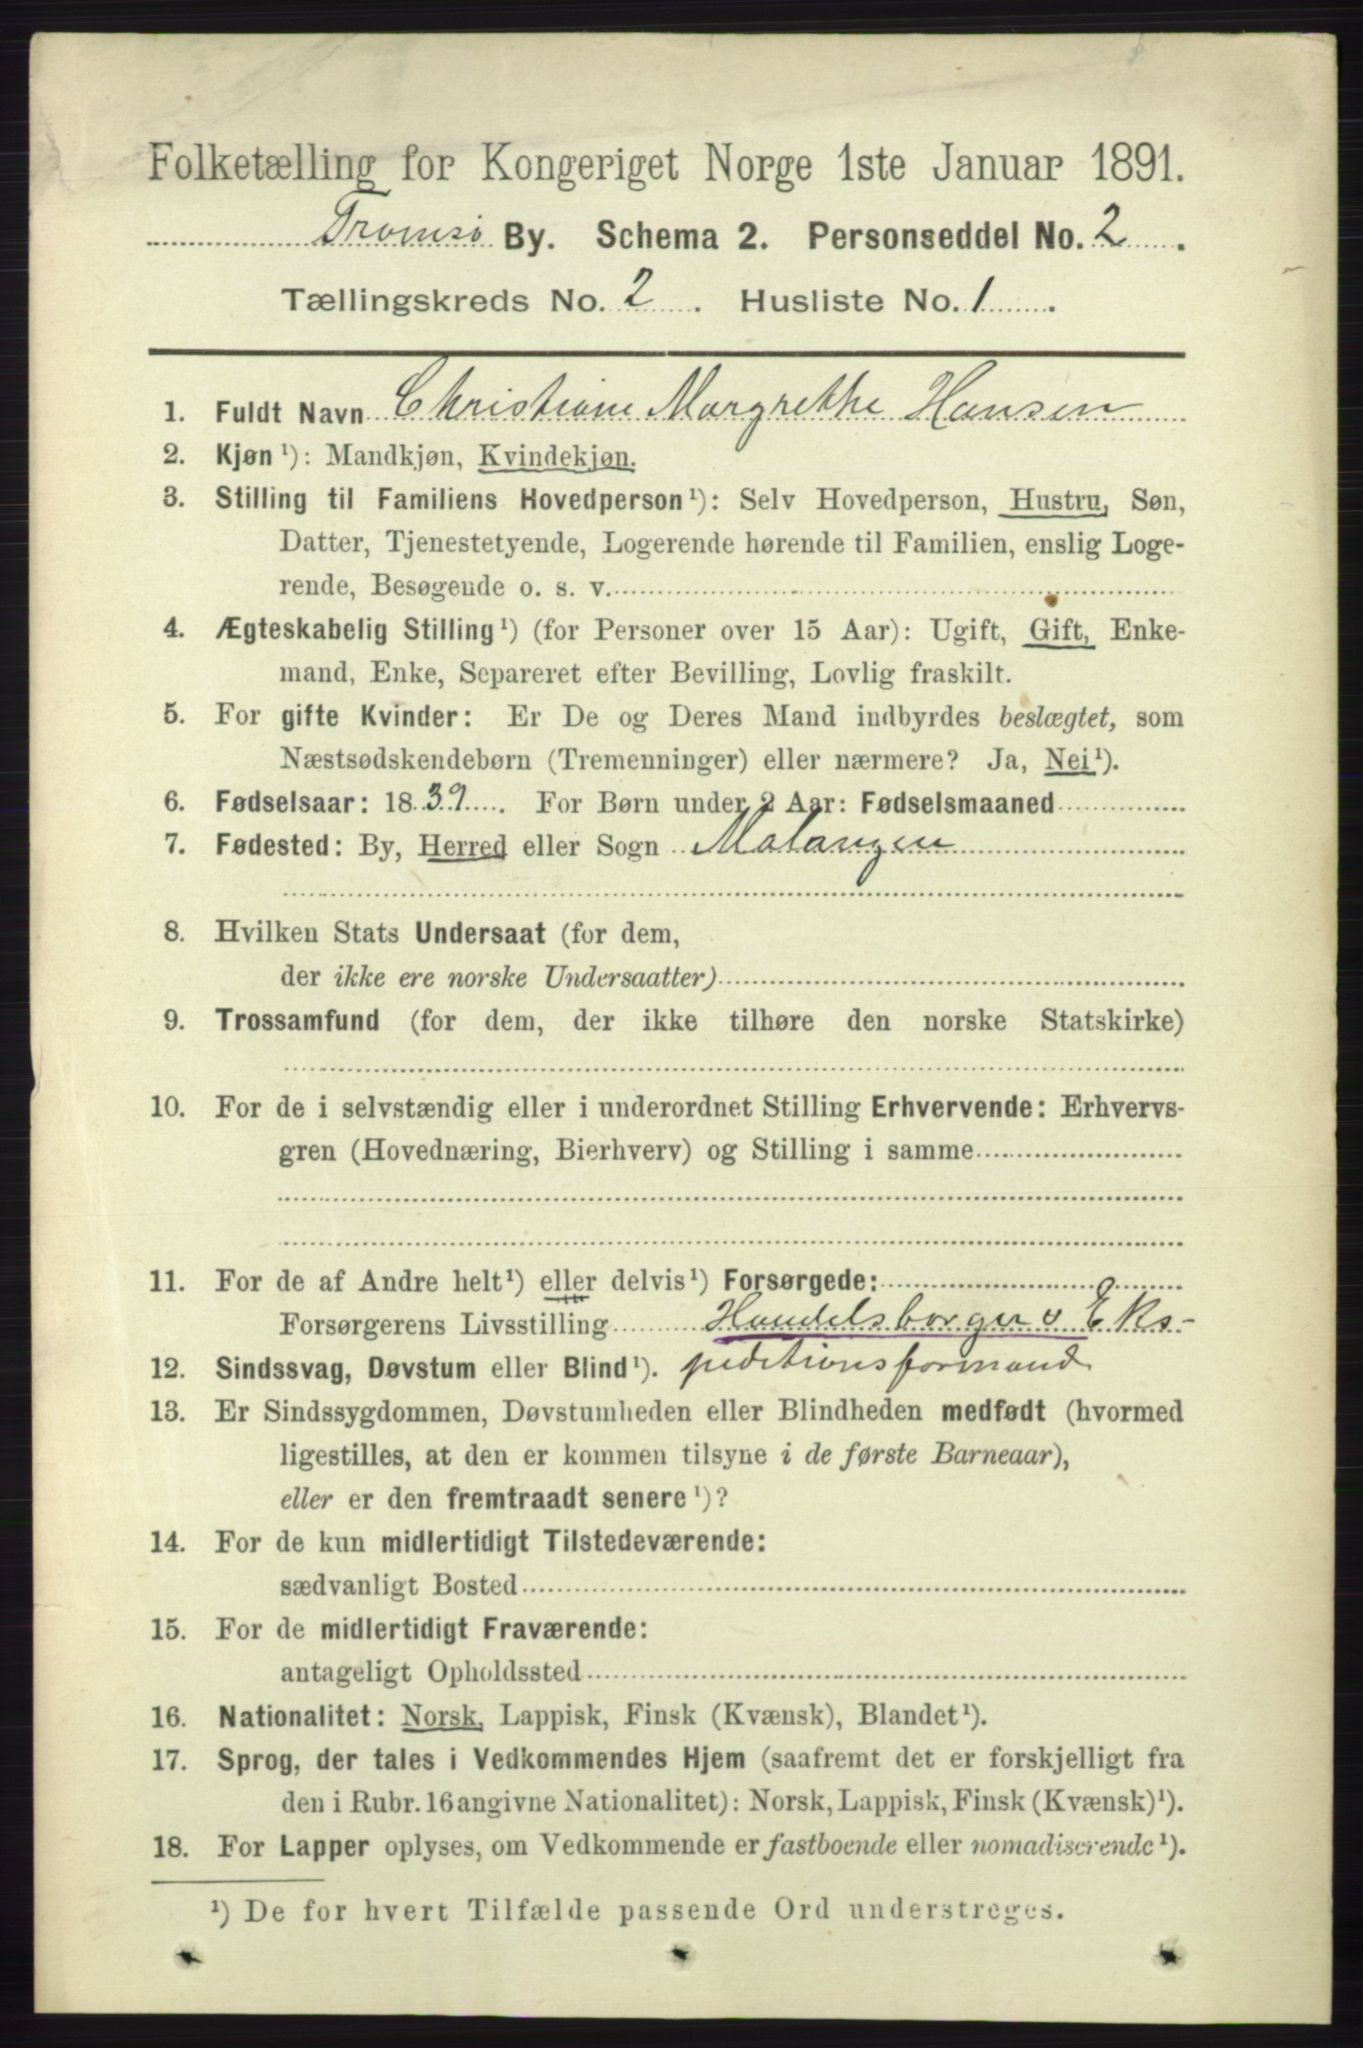 Folketælling for Kongeriget Norge 1ste Januar 1891.
Tromsø By. Schema 2. Personseddel No. 2.
Tællingskreds No. 2. Husliste No. 1.
1. Fuldt Navn Christiane Margrethe Hansen
2. Kjøn ¹): Mandkjøn, Kvindekjøn.
3. Stilling til Familiens Hovedperson ¹): Selv Hovedperson, Hustru, Søn,
Datter, Tjenestetyende, Logerende hørende til Familien, enslig Loge-
rende, Besøgende o. s. v.
4. Ægteskabelig Stilling ¹) (for Personer over 15 Aar): Ugift, Gift, Enke-
mand, Enke, Separeret efter Bevilling, Lovlig fraskilt.
5. For gifte Kvinder: Er De og Deres Mand indbyrdes beslægtet, som
Næstsødskendebørn (Tremenninger) eller nærmere? Ja, Nei ¹).
6. Fødselsaar: 1839. For Børn under 2 Aar: Fødselsmaaned
7. Fødested: By, Herred eller Sogn Malangen
8. Hvilken Stats Undersaat (for dem,
der ikke ere norske Undersaatter)
9. Trossamfund (for dem, der ikke tilhøre den norske Statskirke)
10. For de i selvstændig eller i underordnet Stilling Erhvervende: Erhvervs-
gren (Hovednæring, Bierhverv) og Stilling i samme
11. For de af Andre helt ¹) eller delvis ¹) Forsørgede:
Forsørgerens Livsstilling Handelsborger o Eks-
12. Sindssvag, Døvstum eller Blind ¹). peditionsformand
13. Er Sindssygdommen, Døvstumheden eller Blindheden medfødt (hvormed
ligestilles, at den er kommen tilsyne i de første Barneaar),
eller er den fremtraadt senere ¹)?
14. For de kun midlertidigt Tilstedeværende:
sædvanligt Bosted
15. For de midlertidigt Fraværende:
antageligt Opholdssted
16. Nationalitet: Norsk, Lappisk, Finsk (Kvænsk), Blandet ¹).
17. Sprog, der tales i Vedkommendes Hjem (saafremt det er forskjelligt fra
den i Rubr. 16 angivne Nationalitet): Norsk, Lappisk, Finsk (Kvænsk) ¹).
18. For Lapper oplyses, om Vedkommende er fastboende eller nomadiserende ¹).
¹) De for hvert Tilfælde passende Ord understreges.